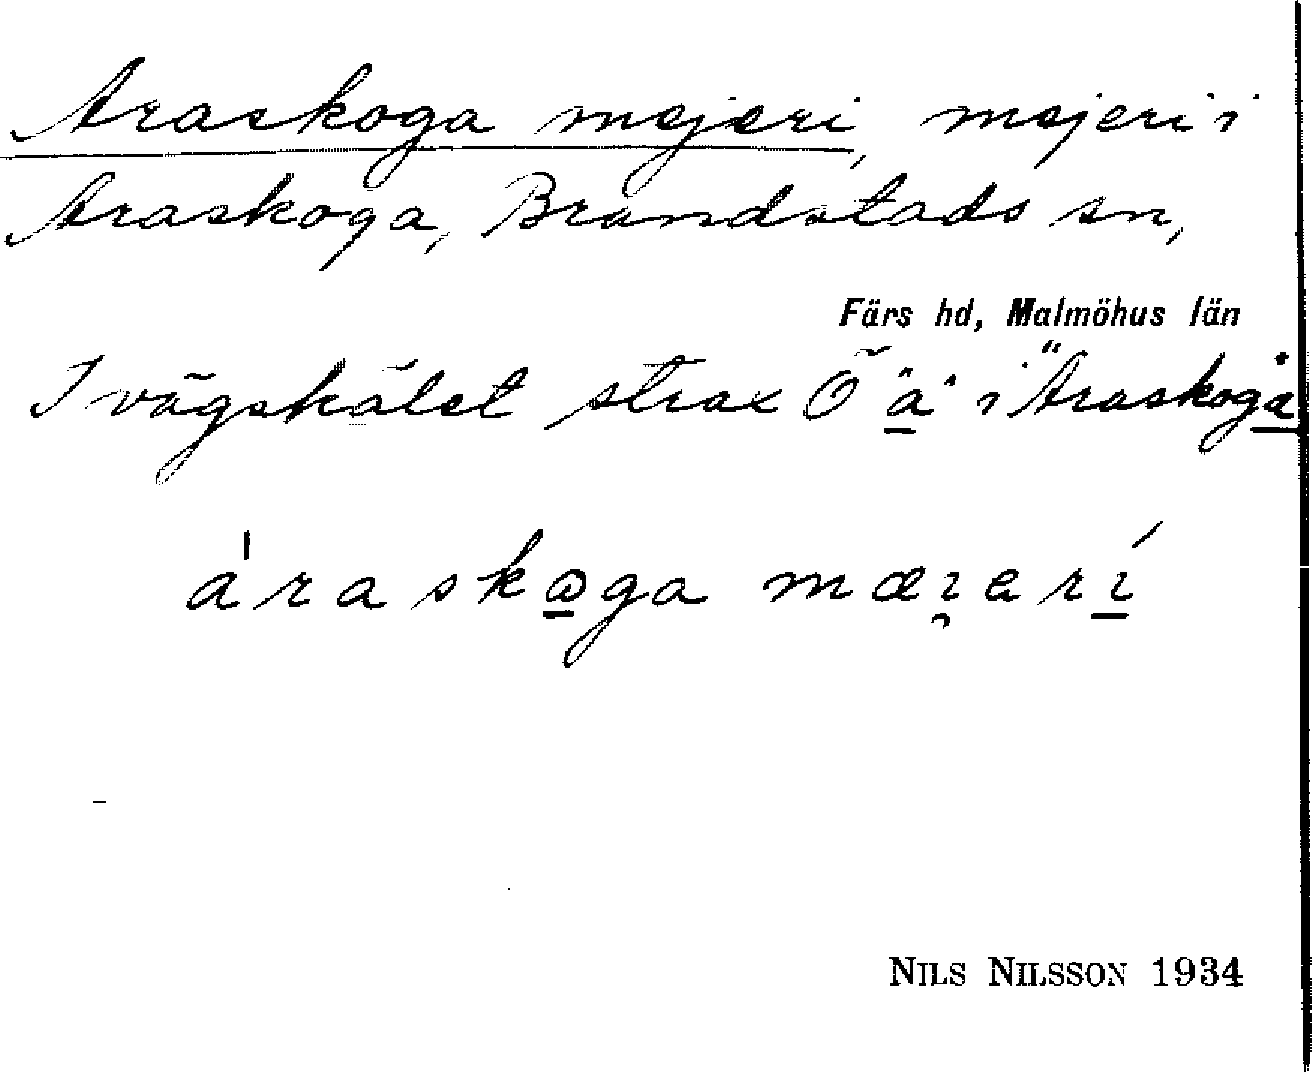 Araskoga mejeri, mejeri i
Araskoga, Brandstads sn,
Färs hd, Malmöhus län
I vägskälet strax Ö "a" i "Araskoga
áraskωga mæi̯erí
NILS NILSSON 1934